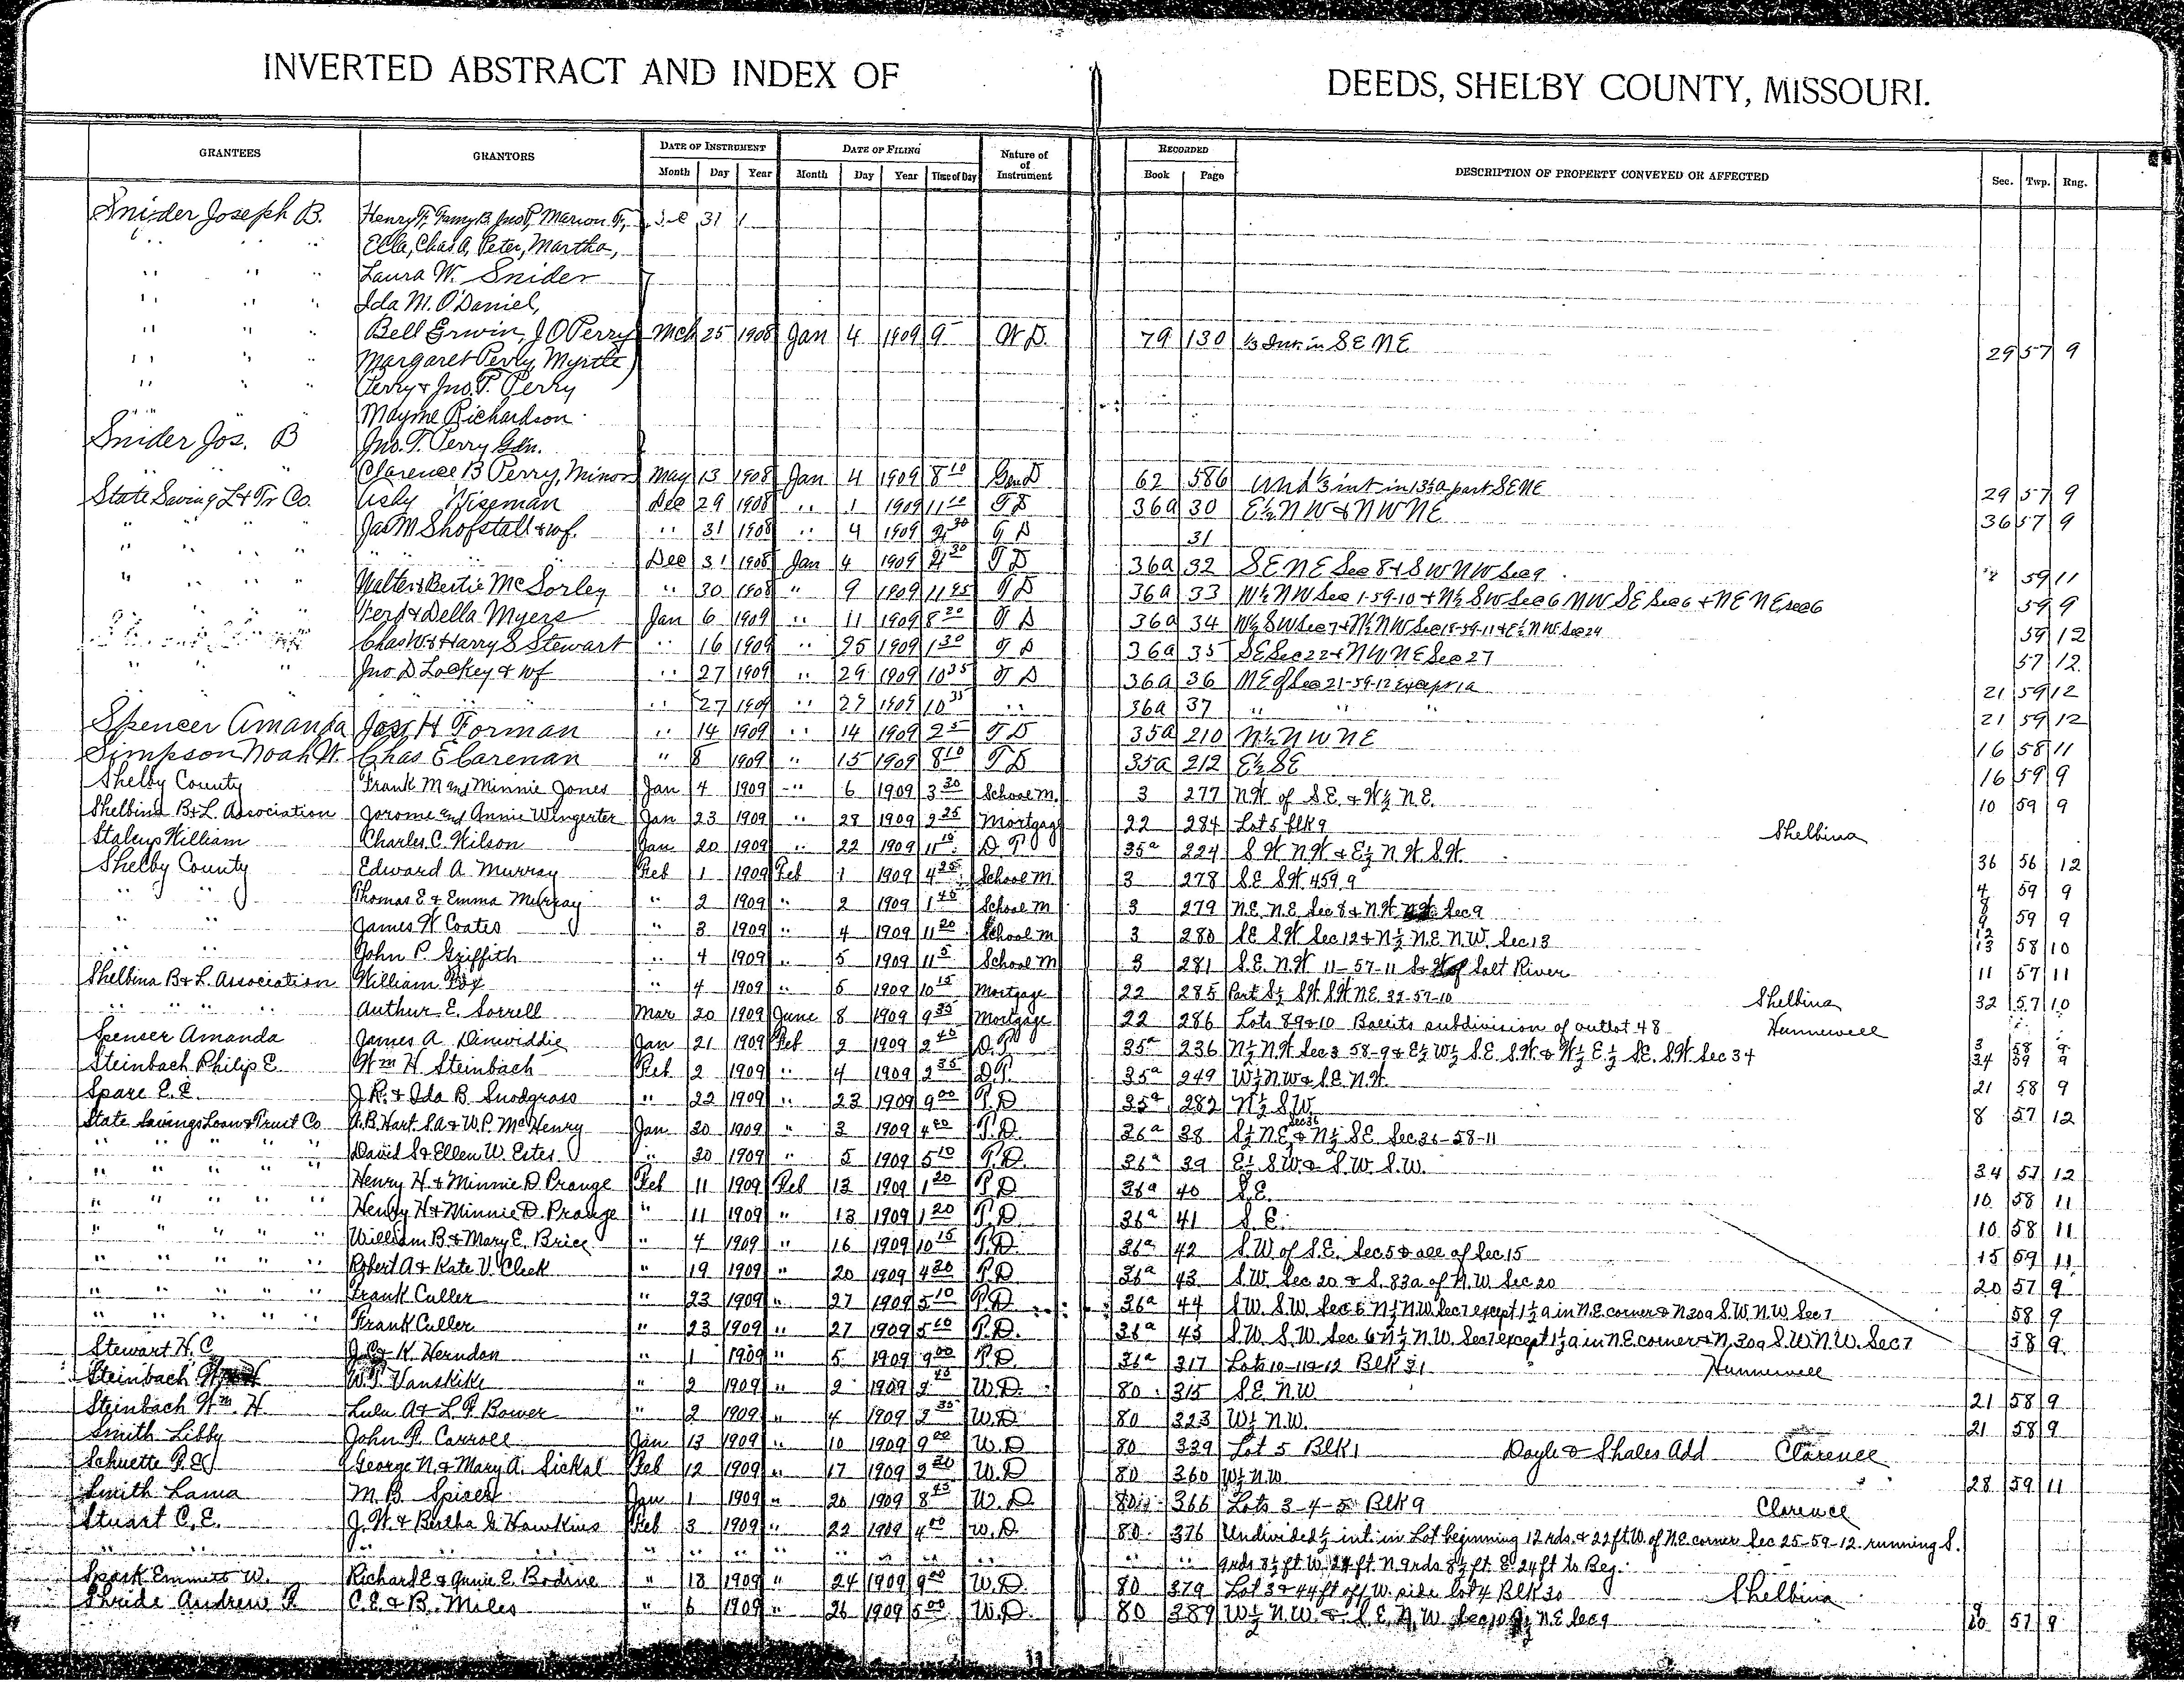 INVERTED ABSTRACT AND INDEX OF DEEDS, SHELBY COUNTY, MISSOURI.
GRANTEES GRANTORS DATE OF INSTRUMENT DATE OF FILING Nature of RECORDED DESCRIPTION OF PROPERTY CONVEYED OR AFFECTED Sec. Twp. Rng.
Month Day Year Month Day Year Time of Day of Instrument Book Page
Snider Joseph B. Henry F, Jno P, Marion F, 31
" " " Ella, Chas A, Peter, Martha,
" " " Laura W. Snider
" " " Ida M. O'Daniel,
" " " Bell Erwin, J O Perry Mch 25 1908 Jan 4 1909 9 W D. 79 130 1/3 Int. in S E N E 29 57 9
" " " Margaret Perry, Myrtle
" " " Perry & Jno. P. Perry
" " " Mayme Richardson
Snider Jos. B Jno. T. Perry Gdn.
" " " Clarence B Perry, Minor May 13 1908 Jan 4 1909 8 10 62 586 Und 1/3 int in 13 1/3 a part S E N E 29 57 9
State Saving L & Tr Co. Wiseman Dec 29 1908 " 1 1909 11 10 T D 36a 30 E 1/2 N W & N W N E 36 57 9
" " " " " Jas M Shofstall & wf. " 31 1908 " 4 1909 2 30 T D 31
" " " " " " Dec 31 1908 Jan 4 1909 2 30 T D 36a 32 S E N E Sec 8 & S W N W Sec 9 59 11
" " " " " Walter & Bertie McSorley " 30 1908 " 9 1909 11 45 T D 36a 33 W 1/2 N W Sec 1-59-10 & N 1/2 S W Sec 6 N W S E Sec 6 & N E N E Sec 6 59 9
Ferd & Della Myers Jan 6 1909 " 11 1909 8 20 T D 36a 34 W 1/2 S W Sec 7 & N 1/2 N W Sec 18-59-11 & E 1/2 N W Sec 24 59 12
Chas W. & Harry S Stewart " 16 1909 " 25 1909 1 30 T D 36a 35 S E Sec 22 & N W N E Sec 27 57 12
" " " Jno D Lackey & wf " 27 1909 " 29 1909 10 35 T D 36a 36 N E of Sec 21-59-12 Except 1a 21 59 12
" " " " " 27 1909 " 29 1909 10 35 " 36a 37 " " " 21 59 12
Spencer Amanda Jos. H Forman " 14 1909 " 14 1909 2 5 T D 35a 210 N 1/2 N W N E 16 58 11
Simpson Noah W. Chas E Carenan " 8 1909 " 15 1909 8 10 T D 35a 212 E 1/2 S E 16 59 9
Shelby County Frank M and Minnie Jones Jan 4 1909 " 6 1909 3 30 School M. 3 277 N.W of S.E. & W 1/2 N.E. 10 59 9
Shelbina B & L. Association Jorome and Annie Wingerter Jan 23 1909 " 28 1909 2 25 Mortgage 22 284 Lot 5 Blk 9 Shelbina
Staleys William Charles C. Wilson Jan 20 1909 " 22 1909 11 10 D. T 35a 224 S W N W & E 1/2 N W S W. 36 56 12
Shelby County Edward A. Murray Feb 1 1909 Feb 1 1909 4 25 School M 3 278 S.E S.W 4 59 9 4 59 9
" " Thomas E. & Emma Murray " 2 1909 " 2 1909 1 40 School M 3 279 N.E. N.E. Sec 8 & N.W Sec 9 8 9 59 9
" " James W Coates " 3 1909 " 4 1909 11 20 School M 3 280 S E S.W Sec 12 & N 1/2 N.E N.W. Sec 13 12 13 58 10
" " John P. Griffith " 4 1909 " 5 1909 11 5 School M 3 281 S.E. N.W 11-57-11 S & W of Salt River 11 57 11
Shelbina B & L. Association William Fox " 4 1909 " 5 1909 10 15 Mortgage 22 285 Part S 1/2 S.W S.W N.E. 32-57-10 Shelbina 32 57 10
" " " Arthur E. Sorrell Mar 20 1909 June 8 1909 9 35 Mortgage 22 286 Lots 8 9 & 10 subdivision of outlot 48 Hunnewell
Spenser Amanda James A Dinwiddie Jan 21 1909 Feb 2 1909 2 40 D.T. 35a 236 N 1/2 N.W Sec 3 58-9 & E 1/2 W 1/2 S.E. S.W. & W 1/2 E 1/2 S.E. S.W Sec 34 3 34 58 59 9 9
Steinbach Philip E. Wm H Steinbach Feb 2 1909 " 4 1909 2 35 D.T. 35a 249 W 1/2 N W & S.E. N.W. 21 58 9
Spare E. E. J R. & Ida B. Snodgrass " 22 1909 " 23 1909 9 00 T. D 35a 282 N 1/2 S W 8 57 12
State Savings Loan & Trust Co A. B. Hart S.A & W.P. McHenry Jan 30 1909 " 3 1909 4 00 T. D. 36a 38 S 1/2 N E Sec 36 & N 1/2 S E. Sec 36-58-11
" " " " " David S & Ellen W. Estes " 30 1909 " 5 1909 5 10 T. D. 36a 39 E 1/2 S W & S. W. S. W. 34 57 12
" " " " " Henry H & Minnie D Prange Feb 11 1909 Feb 13 1909 1 20 T. D 36a 40 S.E. 10 58 11
" " " " " Henry H & Minnie D. Prange " 11 1909 " 13 1909 1 20 T. D. 36a 41 S. E. 10 58 11
" " " " " William B. & Mary E. Brice " 4 1909 " 16 1909 10 15 T. D. 36a 42 S. W of S.E. Sec 5 & all of Sec 15 15 59 11
" " " " " Robert A & Kate V. Cleek " 19 1909 " 20 1909 4 20 T. D 36a 43 S. W. Sec 20 & S. 83a of N.W. Sec 20 20 57 9
" " " " " Frank Culler " 23 1909 " 27 1909 5 10 T. D. 36a 44 S W. S.W. Sec 6 N 1/2 N.W. Sec 7 except 1 1/2 a in N.E. corner & N 30a S.W. N.W. Sec 7 58 9
" " " " " Frank Culler " 23 1909 " 27 1909 5 10 T. D. 36a 45 S.W. S.W. Sec 6 N 1/2 N.W. Sec 7 except 1 1/2 a in N.E. corner & N. 30a S.W. N.W. Sec 7 58 9
Stewart H. C. K. Herndon " 1 1909 " 5 1909 9 00 T. D. 36a 317 Lots 10-11 & 12 Blk 31 Hunnewell
Steinbach W. T. Vanskike " 2 1909 " 2 1909 2 40 W. D. 80 315 S.E N.W 21 58 9
Steinbach Wm. H. Lulu A & L. F. Bower " 2 1909 " 4 1909 2 35 W. D. 80 323 W 1/2 N.W. 21 58 9
Smith Libby John P. Carroll Jan 13 1909 " 10 1909 9 00 W. D 80 339 Lot 5 Blk 1 Doyle & Shales Add Clarence
Schuette George N. & Mary A. Sickal Feb 12 1909 " 17 1909 2 20 W. D 80 360 W 1/2 N.W 28 59 11
Smith Lama M. B Spicer Jan 1 1909 " 20 1909 8 45 W. D. 80 366 Lots 3-4-5 Blk 9 Clarence
Stuart C. E. J. W. & Bertha G Hawkins Feb 3 1909 " 22 1909 4 00 W. D. 80 376 Undivided 1/2 int. in Lot beginning 12 rds. & 22 ft. W. of N.E. corner Sec 25-59-12. running S.
" " " " " " " " " " " " 9 rds 8 1/2 ft W. 24 ft N. 9 rds 8 1/2 ft. E. 24 ft to Beg.
Spark Emmett W. Richard E & Annie E. Bodine " 18 1909 " 24 1909 9 00 W. D. 80 379 Lot 3 & 44 ft off W. side lot 4 Blk 30 Shelbina
Shride Andrew C. E. & B. Miles " 6 1909 " 26 1909 5 00 W. D. 80 389 W 1/2 N.W. & S.E. N.W Sec 10 N.E Sec 9 9 10 57 9